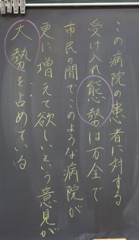 この病院の患者に対する
受け入れ態勢は万全で
市民の間でこのような病院が
更に増えて欲しいという意見が
大勢を占めている